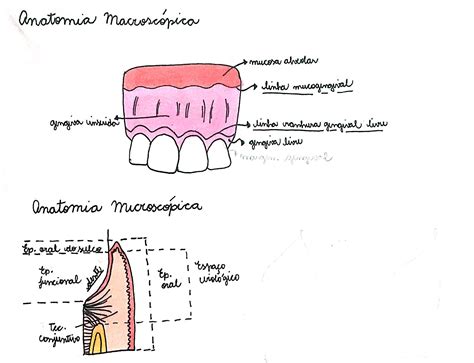 Anatomia Macroscópica
mucosa alveolar
linha mucogengival
gengiva inserida
linha ranhura gengival livre
gengiva livre
Anatomia Microscópica
Ep. oral do sulco
Ep.
funcional
Ep.
oral
Espaço
biológico
Tec.
conjuntivo